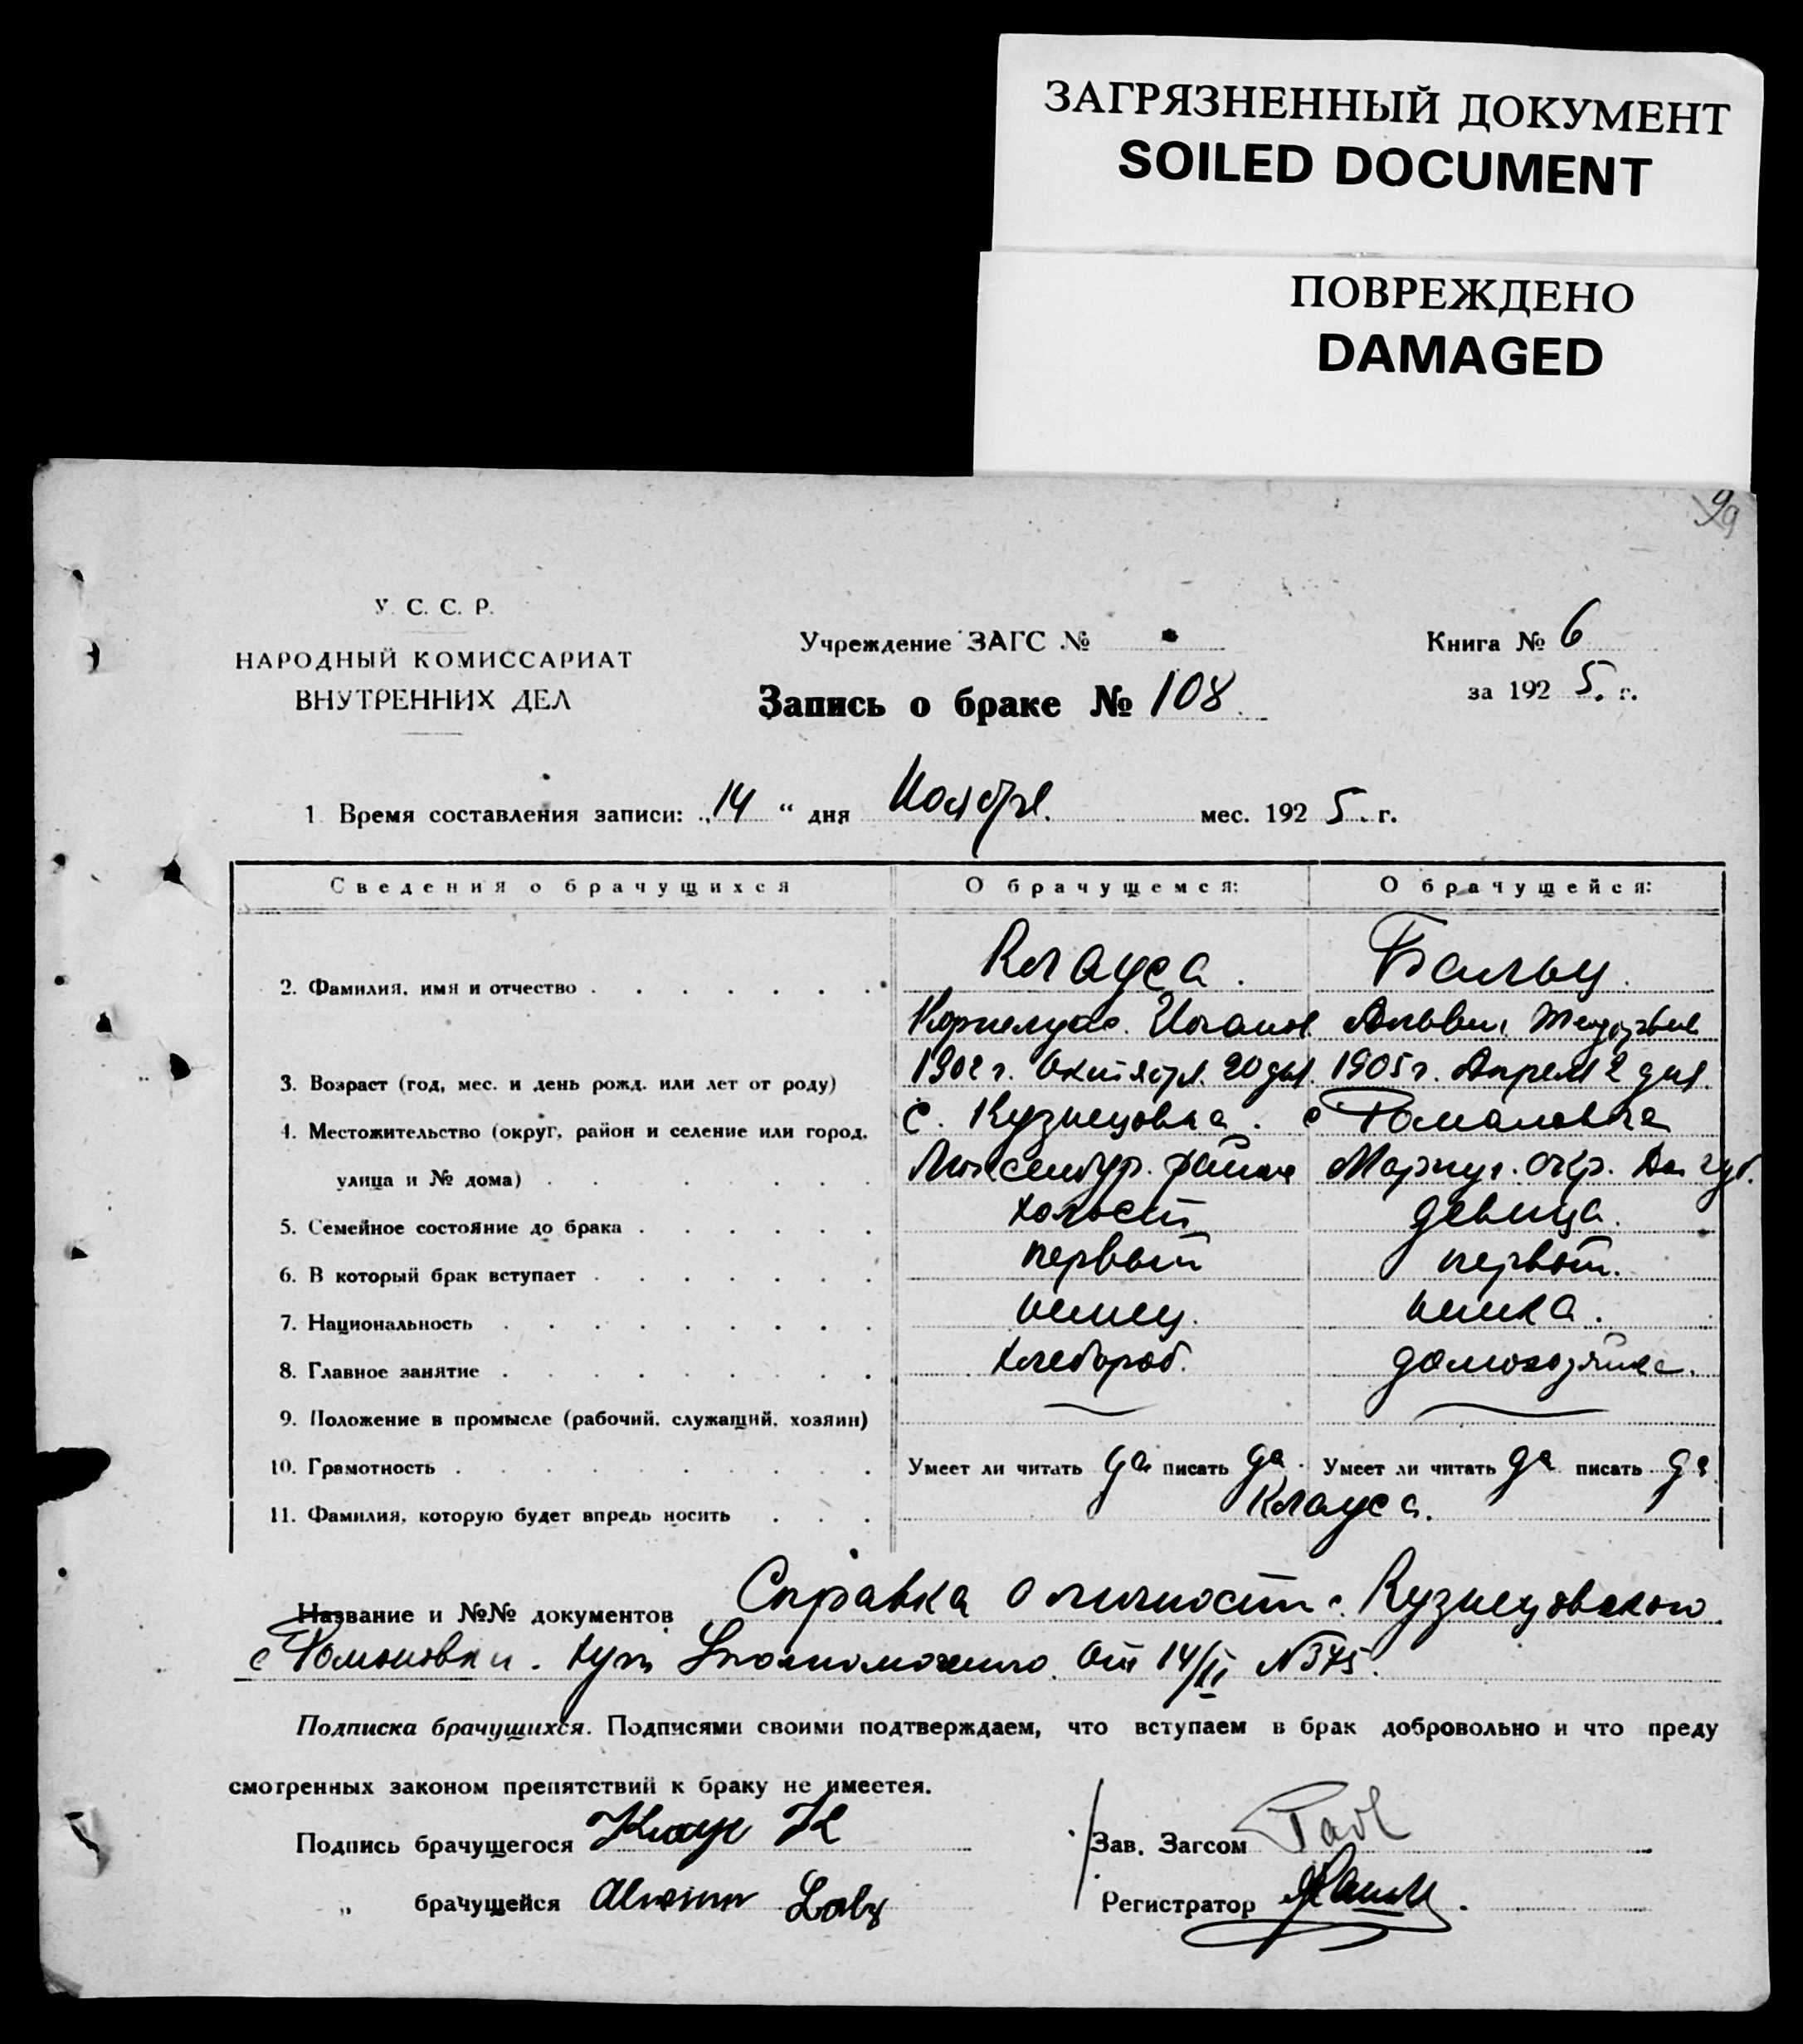 ЗАГРЯЗНЕННЫЙ ДОКУМЕНТ
SOILED DOCUMENT
ПОВРЕЖДЕНО
DAMAGED
У. С. С. Р.
НАРОДНЫЙ КОМИССАРИАТ
ВНУТРЕННИХ ДЕЛ
Учреждение ЗАГС №
Запись о браке № 108
Книга № 6
за 192 5. г.
1 Время составления записи: „14 “ дня Ноября. мес. 192 5. г.
Сведения о брачущихся О брачущемся: О брачущейся:
Клауса. Бальц.
2. Фамилия, имя и отчество
Корнелиус. Альвин.
3. Возраст (год, мес. и день рожд. или лет от роду) 1902 г. Октября 20 дня. 1905 г. Апреля 2 дня.
4. Местожительство (округ, район и селение или город, с. Кузнецовка. с Романовка
улица и № дома) Люксембур. района Мариуп. окр. Дон губ.
5. Семейное состояние до брака холост девица.
6. В который брак вступает первый первый.
7. Национальность немец. немка.
8. Главное занятие хлебороб. домохозяйка.
9. Положение в промысле (рабочий, служащий, хозяин)
10. Грамотность Умеет ли читать да писать да. Умеет ли читать да писать да
11. Фамилия, которую будет впредь носить Клауса.
Название и №№ документов Справка о личности с. Кузнецовского
с Романовки. От 14/II N375.
Подписка брачущихся. Подписями своими подтверждаем, что вступаем в брак добровольно и что преду
смотренных законом препятствий к браку не имеется.
Подпись брачущегося Клаус К
Зав. Загсом
„ брачущейся Alwine
Регистратор